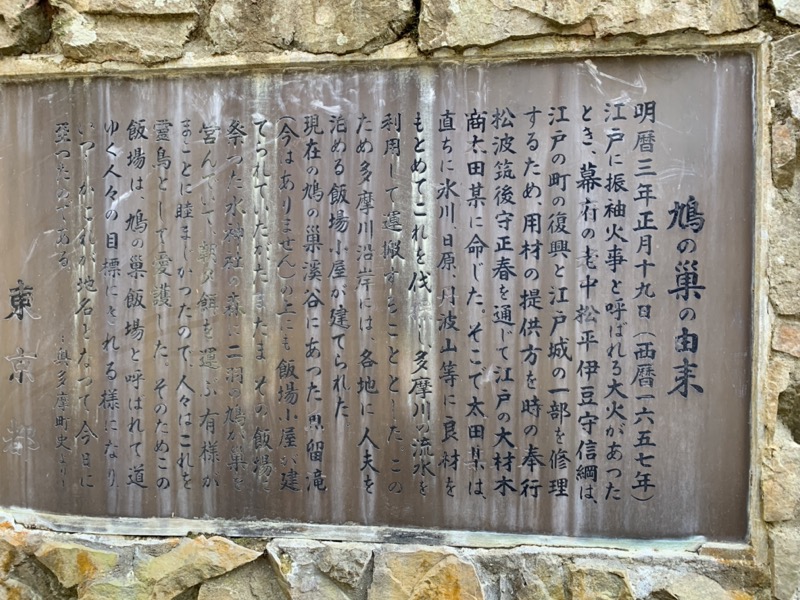 鳩の巣の由来
明暦三年正月十九日(西暦一六五七年)
江戸に振袖火事と呼ばれる大火があつた
とき、幕府の老中松平伊豆守信綱は、
江戸の町の復興と江戸城の一部を修理
するため、用材の提供方を時の奉行
松波筑後守正春を通じて江戸の大材木
商太田某に命じた。そこで太田某は、
直ちに氷川、日原、丹波山等に良材を
もとめてこれを伐 し多摩川の流水を
利用して運搬することとした この
ため多摩川沿岸には、各地に人夫を
泊める飯場小屋が建てられた
現在の鳩の巣渓谷にあつた 留滝
(今はありません)の上にも飯場小屋が建
てられていたがたまたま その飯場に
祭つた水神社の森に二羽の鳩が巣を
営んでいて朝夕餌を運ぶ有様が
まことに睦まじかつたので、人々はこれを
愛鳥として愛護した。そのためこの
飯場は、鳩の巣飯場と呼ばれて道
ゆく人々の目標にされる様になり
いつしかこれが地名となつて今日に
至つたのである
奥多摩町史より
東京都